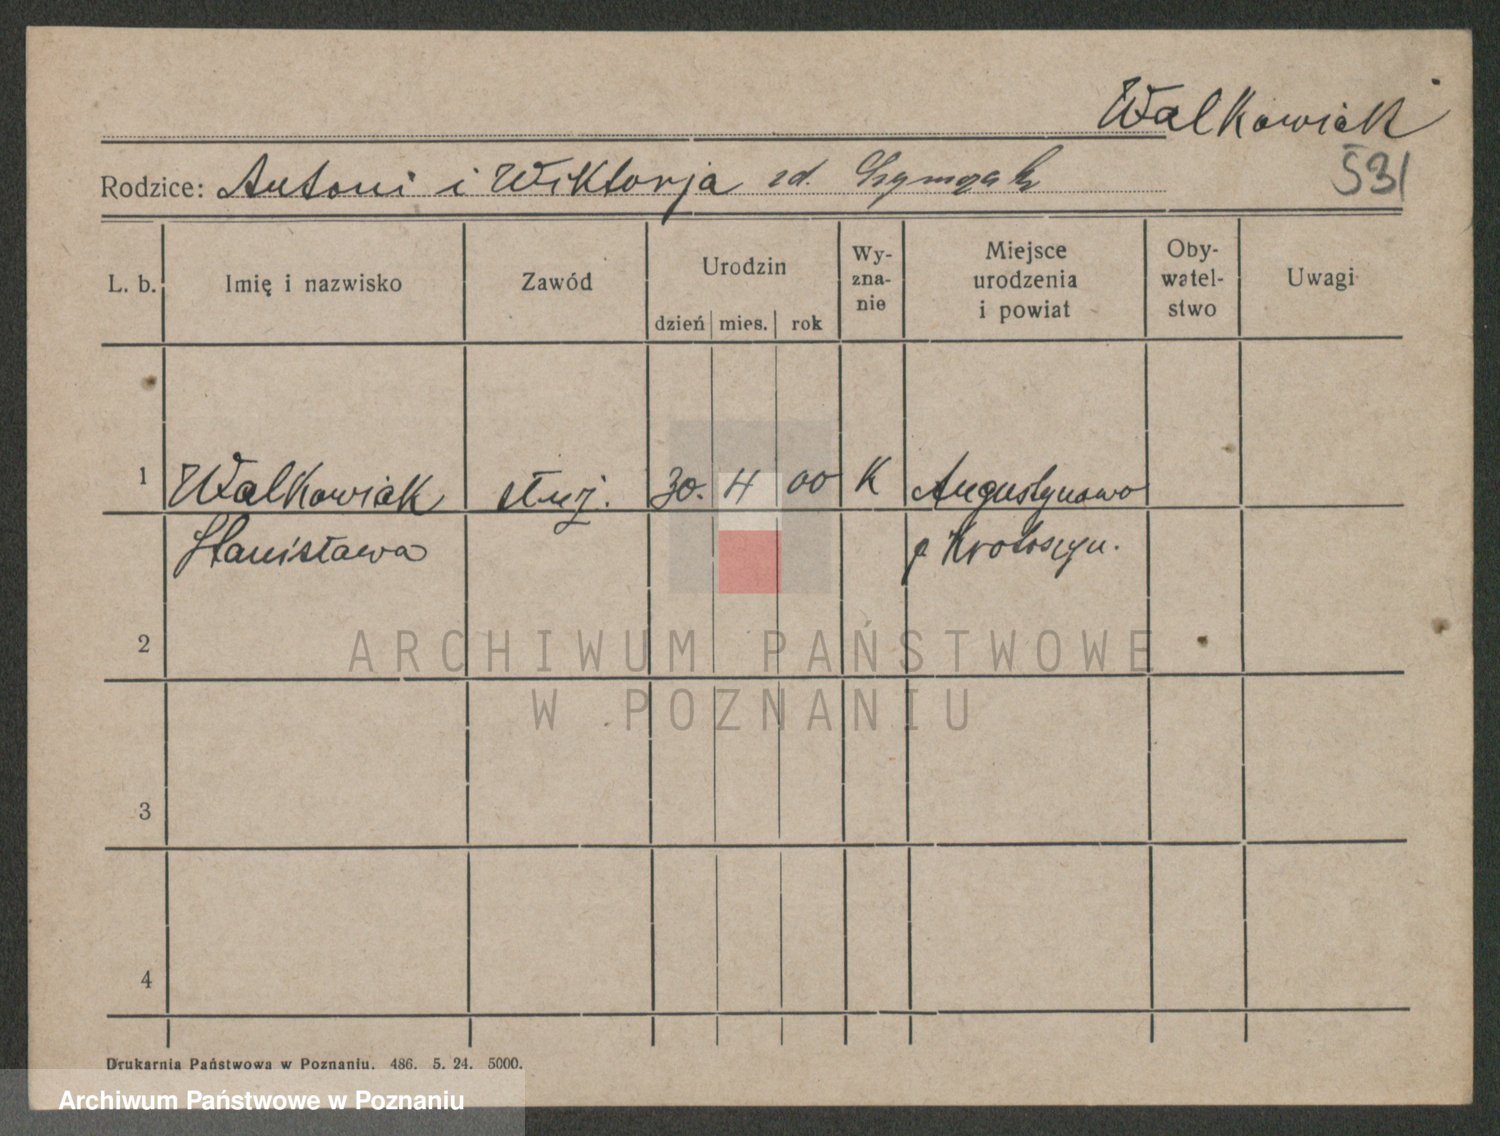 Walkowiak
Rodzice: Antoni i Wiktorja zd. Szymczak
531
L. b. Imię i nazwisko Zawód Urodzin dzień mies. rok Wy-zna-nie Miejsce urodzenia i powiat Oby-watel-stwo Uwagi
1 Walkowiak służ. 30. 4 00 K Augustynowo
Stanisława p Krotoszyn.
2
ARCHIWUM PAŃSTWOWE
W POZNANIU
3
4
Drukarnia Państwowa w Poznaniu. 486. 5. 24. 5000.
Archiwum Państwowe w Poznaniu